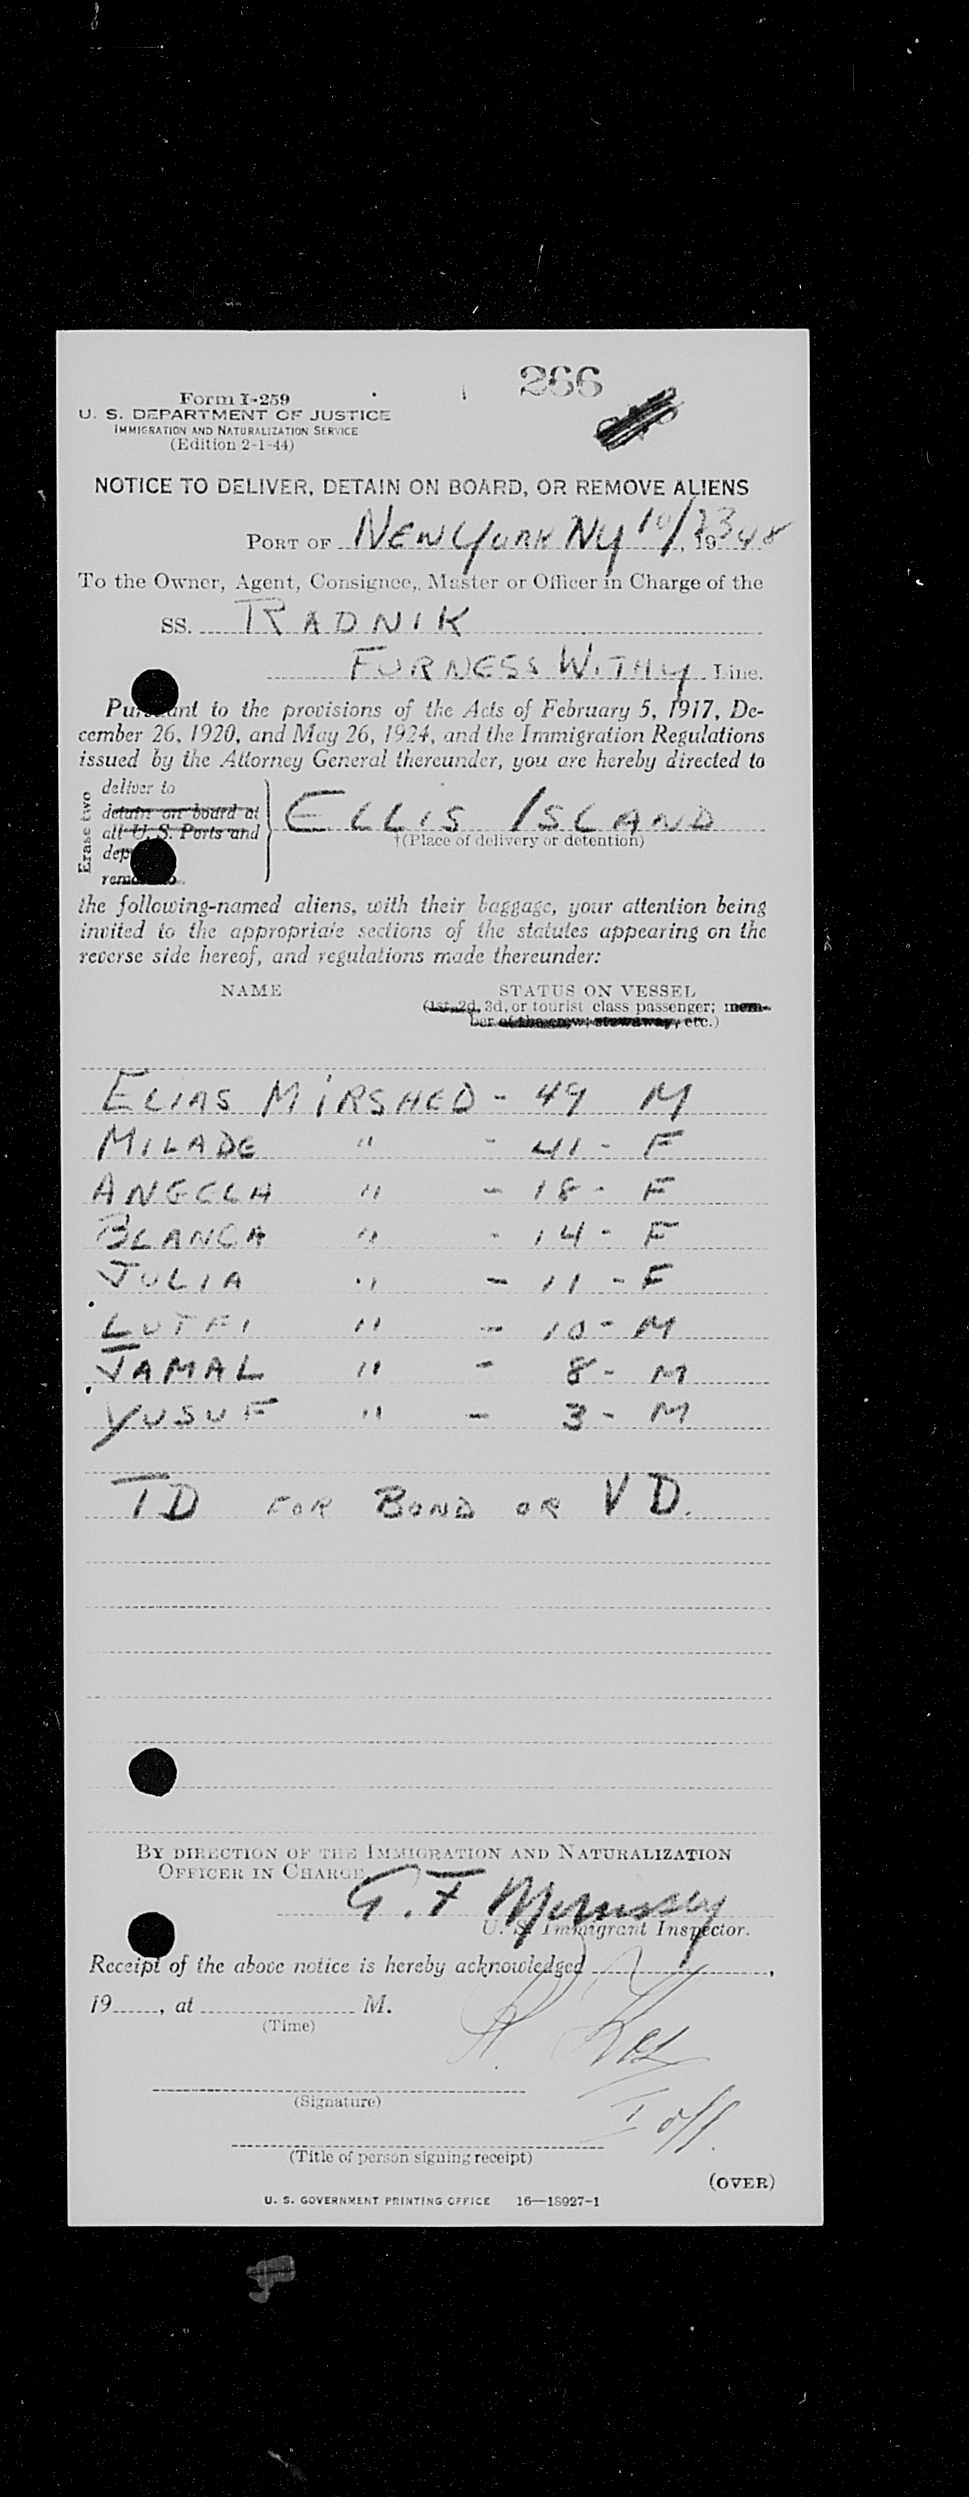 266
Form I-259
U. S. DEPARTMENT OF JUSTICE
IMMIGRATION AND NATURALIZATION SERVICE
(Edition 2-1-44)
NOTICE TO DELIVER, DETAIN ON BOARD, OR REMOVE ALIENS
PORT OF NEW YORK NY 10/23, 1948
To the Owner, Agent, Consignee, Master or Officer in Charge of the
SS. RADNIK
FURNESS WITHY Line.
Pursuant to the provisions of the Acts of February 5, 1917, De-
cember 26, 1920, and May 26, 1924, and the Immigration Regulations
issued by the Attorney General thereunder, you are hereby directed to
Erase two
deliver to
detain on board at
all U. S. Ports and
dep
remo to
ELLIS ISLAND
†(Place of delivery or detention)
the following-named aliens, with their baggage, your attention being
invited to the appropriate sections of the statutes appearing on the
reverse side hereof, and regulations made thereunder:
NAME STATUS ON VESSEL
(1st, 2d, 3d, or tourist class passenger; mem-
ber of the crew; stowaway, etc.)
ELIAS MIRSHED - 49 M
MILADE " - 41 - F
ANGELA " - 18 - F
BLANCA " - 14 - F
JULIA " - 11 - F
LUTFI " - 10 - M
JAMAL " - 8 - M
YUSUF " - 3 - M
TD FOR BOND OR VD.
BY DIRECTION OF THE IMMIGRATION AND NATURALIZATION
OFFICER IN CHARGE.
G. F. Morrissey
U. S. Immigrant Inspector.
Receipt of the above notice is hereby acknowledged ,
19 , at M.
(Time)
(Signature)
(Title of person signing receipt)
(OVER)
U. S. GOVERNMENT PRINTING OFFICE 16—18927-1